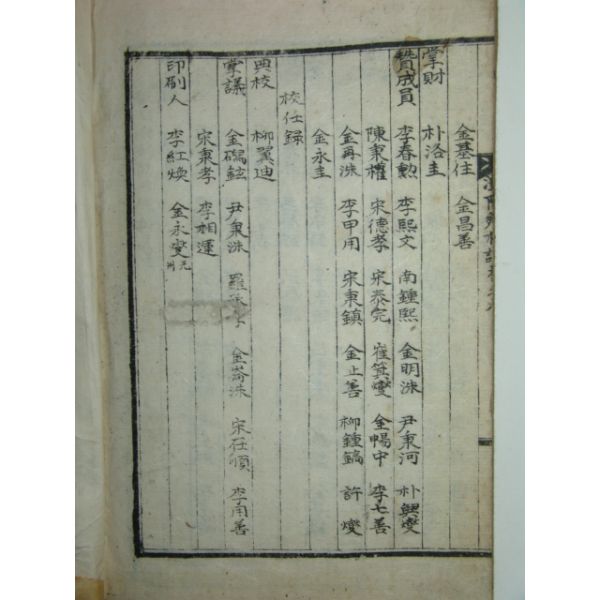 金基住 金昌善
掌財 朴洛圭
贊成員 李春勲 李熙文 南鍾熙 金明洙 尹秉河 朴興燮
陳秉權 宋德孝 宋泰完 崔箕燮 金暢中 李七善
金再洙 李甲用 宋秉鎮 金止善 柳鍾鎬 許燮
金永圭
校任録
典校 柳翼迪
掌議 金鴻鉉 尹秉洙 羅 金 洙 宋在順 李用善
宋秉孝 李相運
印刷人 李紅煥 金永燮